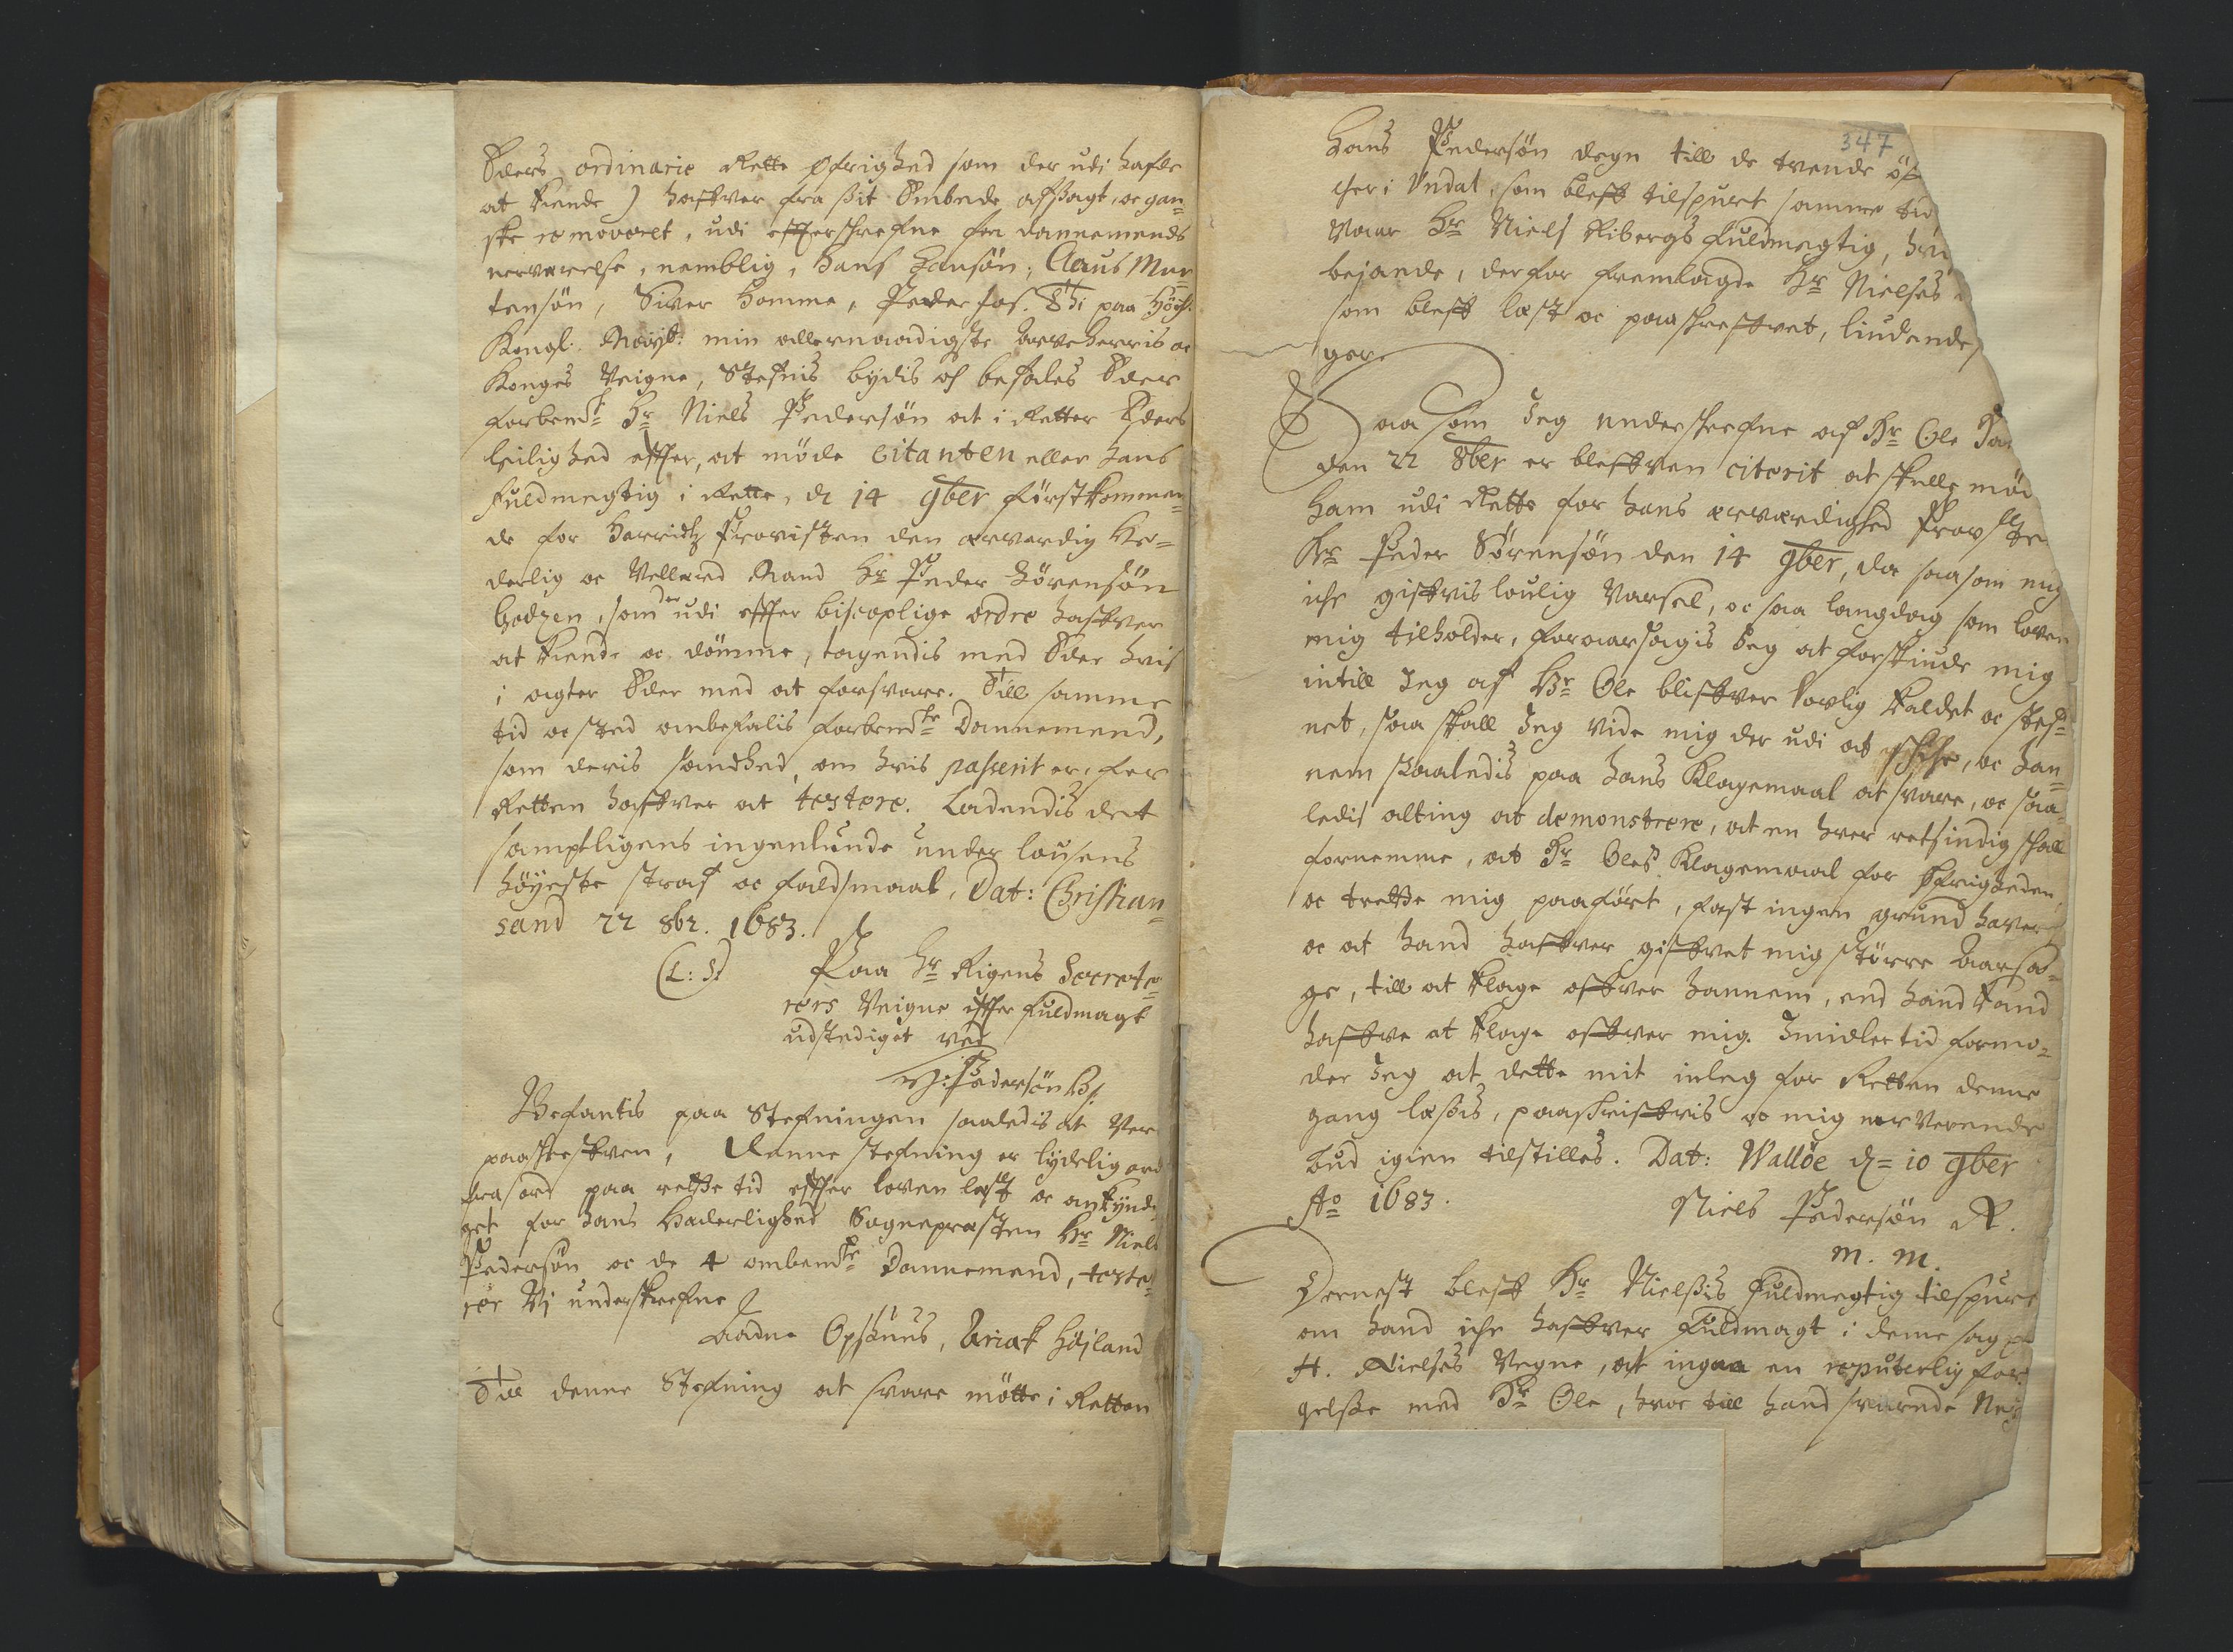 Eders ordinarie Rette Øfrighed som der udi hafde
at kiende) hafver fra sit Embede afsagt, oc gan=
ske removeret, udi efterschrefne fra dannemends
nerverelse, nemblig, Hans Hansøn, Claus Mor
tensøn, Siver Homme, Peder fos. Thi paa Høih:
Kongl. Mayt: min allernaadigste Arveherris oc
Konges Veigne, Stefnis bydis oc befales Eder
forbemte Hr Niels Pedersøn at i Retter Eders
leilighed effter, at møde Citanten eller hans
Fuldmegtig i Rette, d 14 9ber førstkommen=
de for Herridtz Provsten den ærværdig Hæ=
derlig oc Vellærd Mand Hr Peder Sørensøn
Godzen, som der udi effter biscoplige ordre hafver
at kiende oc dømme, tagendis med Eder hvis
i agter Eder med at forsvare. Till samme
tid oc sted ombefalis forbemte Dannemend,
som deris sandhed, om hvis passerit er, for
Retten hafver at testere. Ladendis det
samptligens ingenlunde under lousens
høyeste straf oc faldsmaal, Dat: Christian=
sand 22 8br. 1683.
(L: S) Paa Hr Rigens Secrete=
rers Veigne effter fuldmagt
udstediget ved
Pedersøn
Befantis paa Stefningen saaledis at Ver
paaskrefven, Denne stefning er lydelig ord
fra ord paa rette tid effter loven læst oc ankyndi
get for hans Hæderlighed Sognepræsten Hr Niels
Pedersøn oc de 4 ombemte Dannemend, teste=
rer Vj underskrefne
Aadne Opshuus, Ariak Højland
Till denne Stefning at svare møtte i Retten
347
Hans Pedersøn degn till de tvende
cker i Undal, som bleff tilspurt samme tid
Vaar Hr Niels Ribergs fuldmegtig,
bejaende, derfor fremlagde Hr Nielses
som bleff læst oc paaschrefvet, liudende
gere
Saa som Jeg underschrefne af Hr Ole
den 22 8ber er blefven citerit at skulle
ham udi Rette for hans ærværdighed Provsten
Hr Peder Sørensøn den 14 9ber, da saasom mig
iche gifvis loulig Varsel, oc saa langdag som loven
mig tilholder, foraarsagis Jeg at forskiude mig
intill Jeg af Hr Ole blifver lovlig kaldet oc stef=
net, saa skall Jeg vide mig der udi at schiche, oc han=
nem saaledis paa hans Klagemaal at svare, oc saa=
ledis alting at demonstrere, at en hver retsindig schall
fornemme, at Hr Oles Klagemaal for Øfrigheden,
oc trette mig paaført, fast ingen grund haver
oc at hand hafver gifvet mig større Aarsa=
ge, till at klage ofver hannem, end hand kand
hafve at klage ofver mig. Imidlertid formo=
der Jeg at dette mit inleg for Retten denne
gang læsis, paaschrifvis oc mig nerverende
bud igien tilstilles. Dat: Walløe d= 10 9ber
Ao 1683.
Niels Pedersøn R.
m. m.
Dernest bleff Hr Nielsis fuldmegtig tilspurt
om hand iche hafver fuldmagt i denne sag
H. Nielses Vegne, at ingaa en reputerlig for
gelsse med Hr Ole, hvor till hand svarede Nej